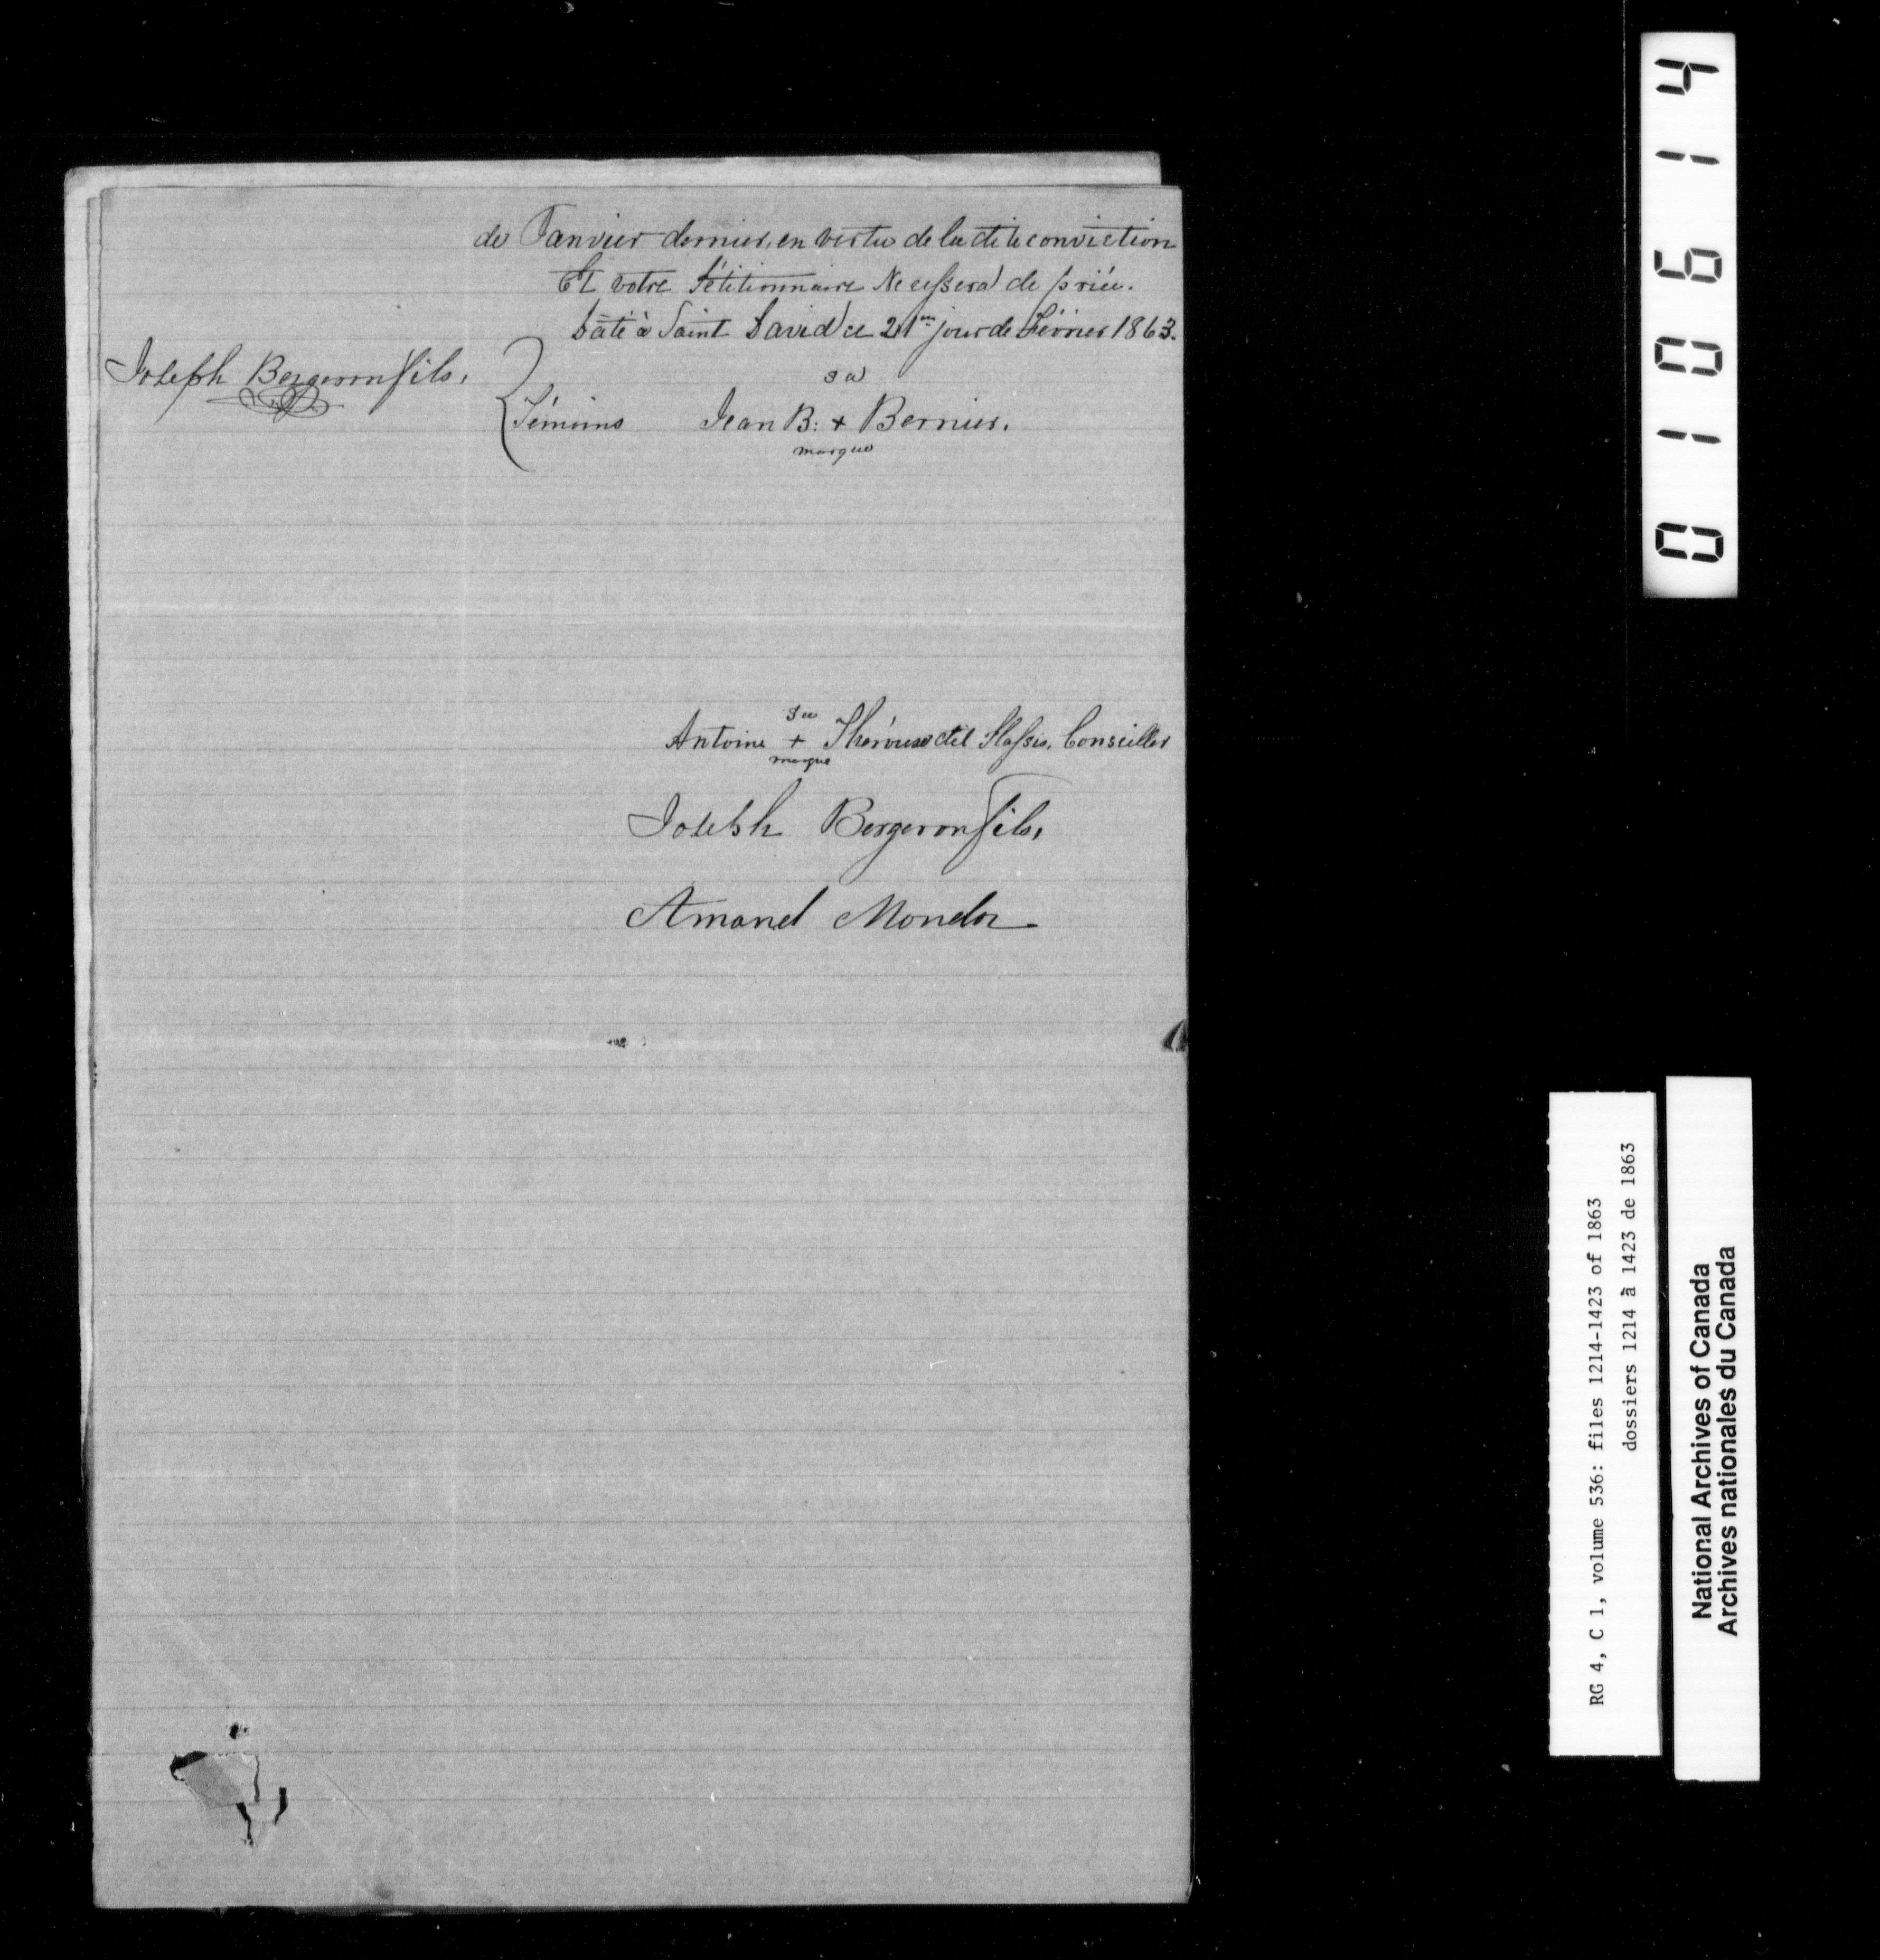 de Janvier dernier, en vertu de la dite conviction
Et votre Pétitionnaire Ne cessera de prier.
Daté à Saint David ce 21me jour de Février 1863.
Joseph Bergeron fils,
sa
Témoins Jean B: + Bernier.
marque
sa
Antoine + Théroux dit Plassis, Conseiller
marque
Joseph Bergeron fils,
Amand Mondor
010614
RG 4, C 1, volume 536: files 1214-1423 of 1863
dossiers 1214 à 1423 de 1863
National Archives of Canada
Archives nationales du Canada